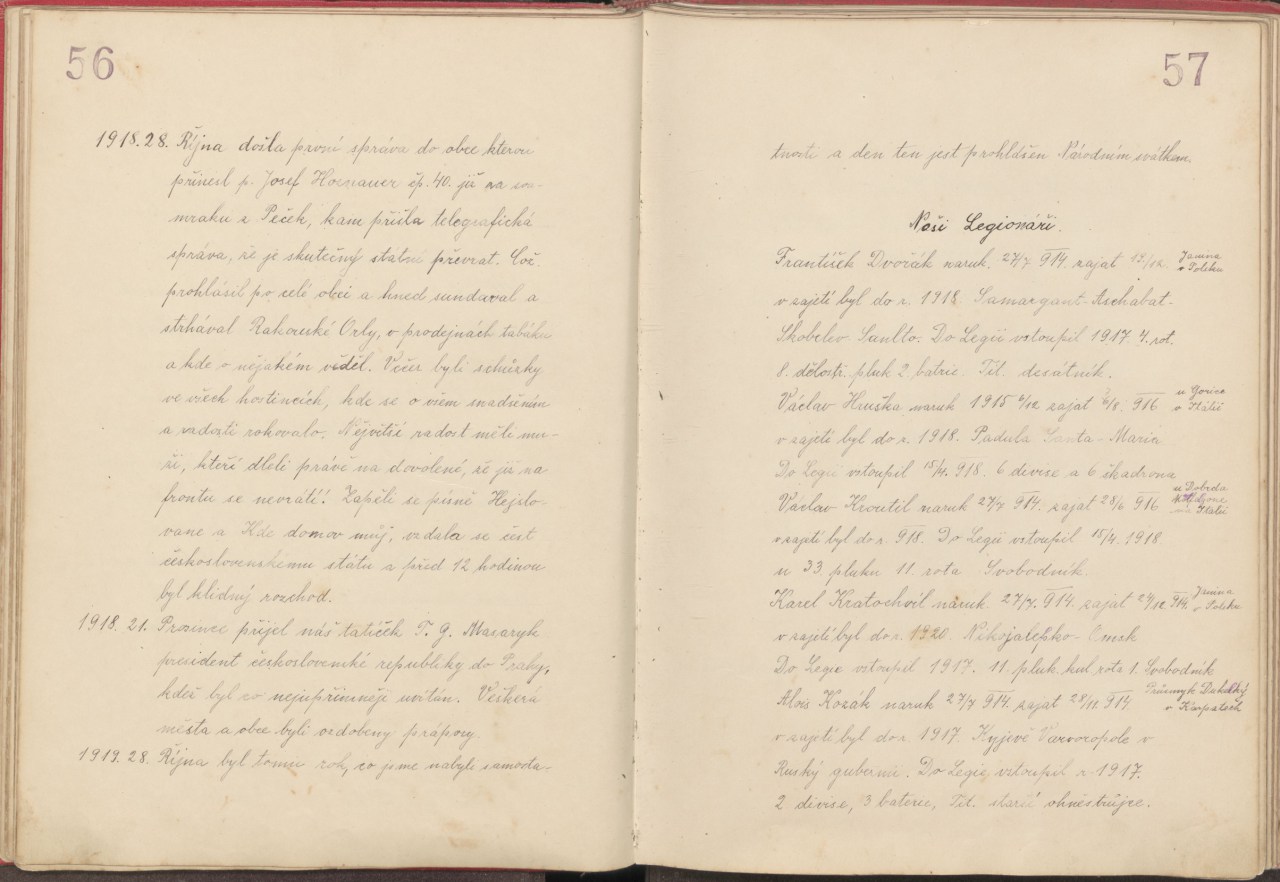 56
1918. 28. Října došla první správa do obce kterou
přinesl p. Josef Hornauer čp. 40. již za sou-
mraku z Peček, kam přišla telegrafická
správa, že je skutečný státní převrat. Což
prohlásil po celé obci a hned sundaval a
strhával Rakouské Orly, v prodejnách tabáku
a kde o nějakém věděl. Večer byli schůzky
ve všech hostincích, kde se o všem s nadšením
a radostí rokovalo. Nějvětší radost měli mu-
ži, kteří dleli právě na dovolené, že již na
frontu se nevrátí! Zapěli se písně Hejslo-
vane a Kde domov můj, vzdala se čest
československému státu a před 12 hodinou
byl klidný rozchod.
1918. 21. Prosince přijel náš tatíček T. G. Masaryk
president československé republiky do Prahy,
kdež byl co nejupřímněji uvítán. Veškerá
města a obce byli ozdobeny prápory.
1919. 28. Října byl tomu rok, co jsme nabyli samosta-
57
tnosti a den ten jest prohlášen Národním svátkem.
Naši Legionáři.
František Dvořák naruk. 27/7 914. zajat 12/12. Janina v Polsku
v zajetí byl do r. 1918 Samargant-Aschabat-
Skobelev Do Legií vstoupil 1917. 4. rot.
8. dělostř. pluk 2. batrie. Tit. desátník.
Václav Hruška naruk 1915 6/12 zajat 6/8. 916 u Gorice v Itálii
v zajetí byl do r. 1918. Padula Santa-Maria
Do Legií vstoupil 15/4. 918. 6 divise a 6 škadrona
Václav Kroutil naruk 27/7 914. zajat 28/6 916 u Itálii
v zajetí byl do r. 918. Do Legií vstoupil 15/4. 1918
u 33 pluku 11. rota Svobodník.
Karel Kratochvíl naruk. 27/7. 914. zajat 24/12 914. Janina v Polsku
v zajetí byl do r. 1920. Omsk
Do Legie vstoupil 1917. 11. pluk. kul rota 1. Svobodník
Alois Kozák naruk 27/7 914. zajat 28/11. 914 Průsmyk Dukelský v Karpatech
v zajetí byl do r. 1917. Kyjevě v
Ruský gubernii. Do Legie vstoupil r. 1917.
2 divise, 3 baterie, Tit. starší ohněstrůjce.